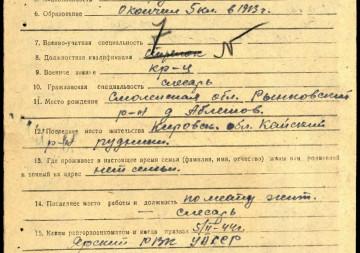 6. Образование Окончил 5 кл. в 1913 г.
7. Военно-учетная специальность
8. Должностная квалификация
9. Военное звание кр-ц
10. Гражданская специальность слесарь
11. Место рождение Смоленская обл.
р-н д
12. Последнее место жительства Кировск. обл. Кайский
р-н рудники.
13. Где проживает в настоящее время семья (фамилия, имя, отчество) жены или родителей
и точный их адрес нет семьи.
14. Последнее место работы и должность по месту жит.
слесарь
15. Каким райгорвоенкоматом и когда призван 5/II-44г.
Ярский РВК УАССР